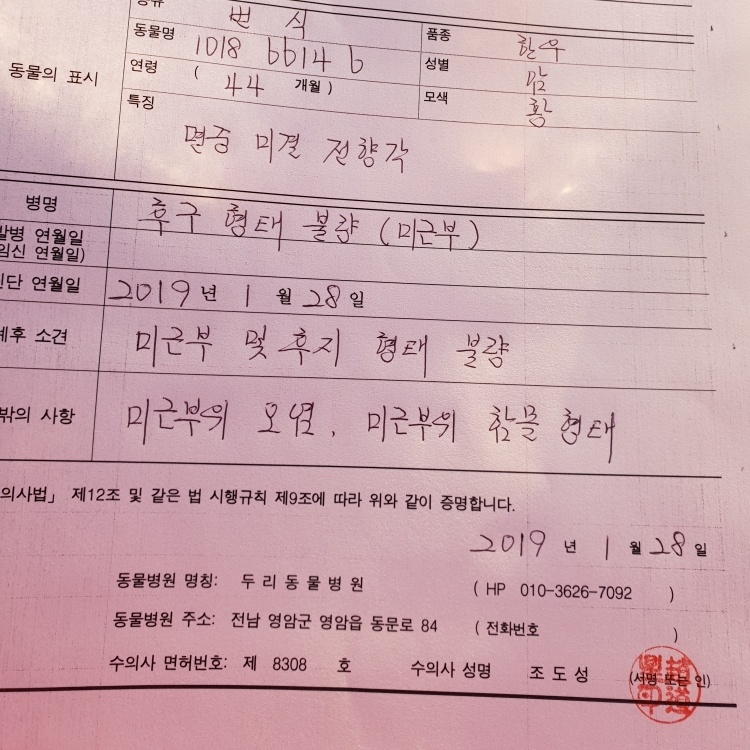 종류 번식
동물의 표시
동물명 1018 6614 6 품종 한우
연령 ( 44 개월 ) 성별 암
특징 모색 황
면중 미결 전향각
병명 후구 형태 불량 (미근부)
발병 연월일
임신 연월일)
진단 연월일 2019 년 1 월 28 일
예후 소견 미근부 및 후지 형태 불량
밖의 사항 미근부의 오열, 미근부의 함몰 형태
의사법」 제12조 및 같은 법 시행규칙 제9조에 따라 위와 같이 증명합니다.
2019 년 1 월 28 일
동물병원 명칭: 두리동물병원 ( HP 010-3626-7092 )
동물병원 주소: 전남 영암군 영암읍 동문로 84 ( 전화번호 )
수의사 면허번호: 제 8308 호 수의사 성명 조도성 (서명 또는 인)